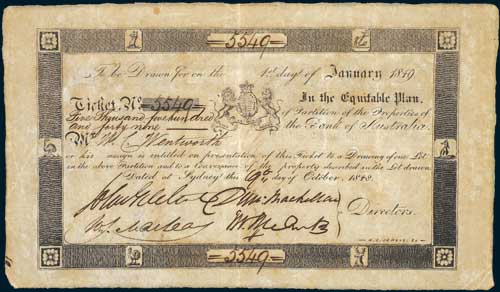 5549
To be Drawn for on the 1st day of January 1849
Ticket, No 5549 In the Equitable Plan,
Five thousand five hundred of Partition of the Properties of
and forty nine the Bank of Australia.
Mr Wentworth
or his assign is entitled on presentation of this Ticket to a Drawing of one Lot
in the above Partition and to a conveyance of the property described in the Lot drawn
Dated at Sydney this 9th day of October, 1848.
Directors.
5549